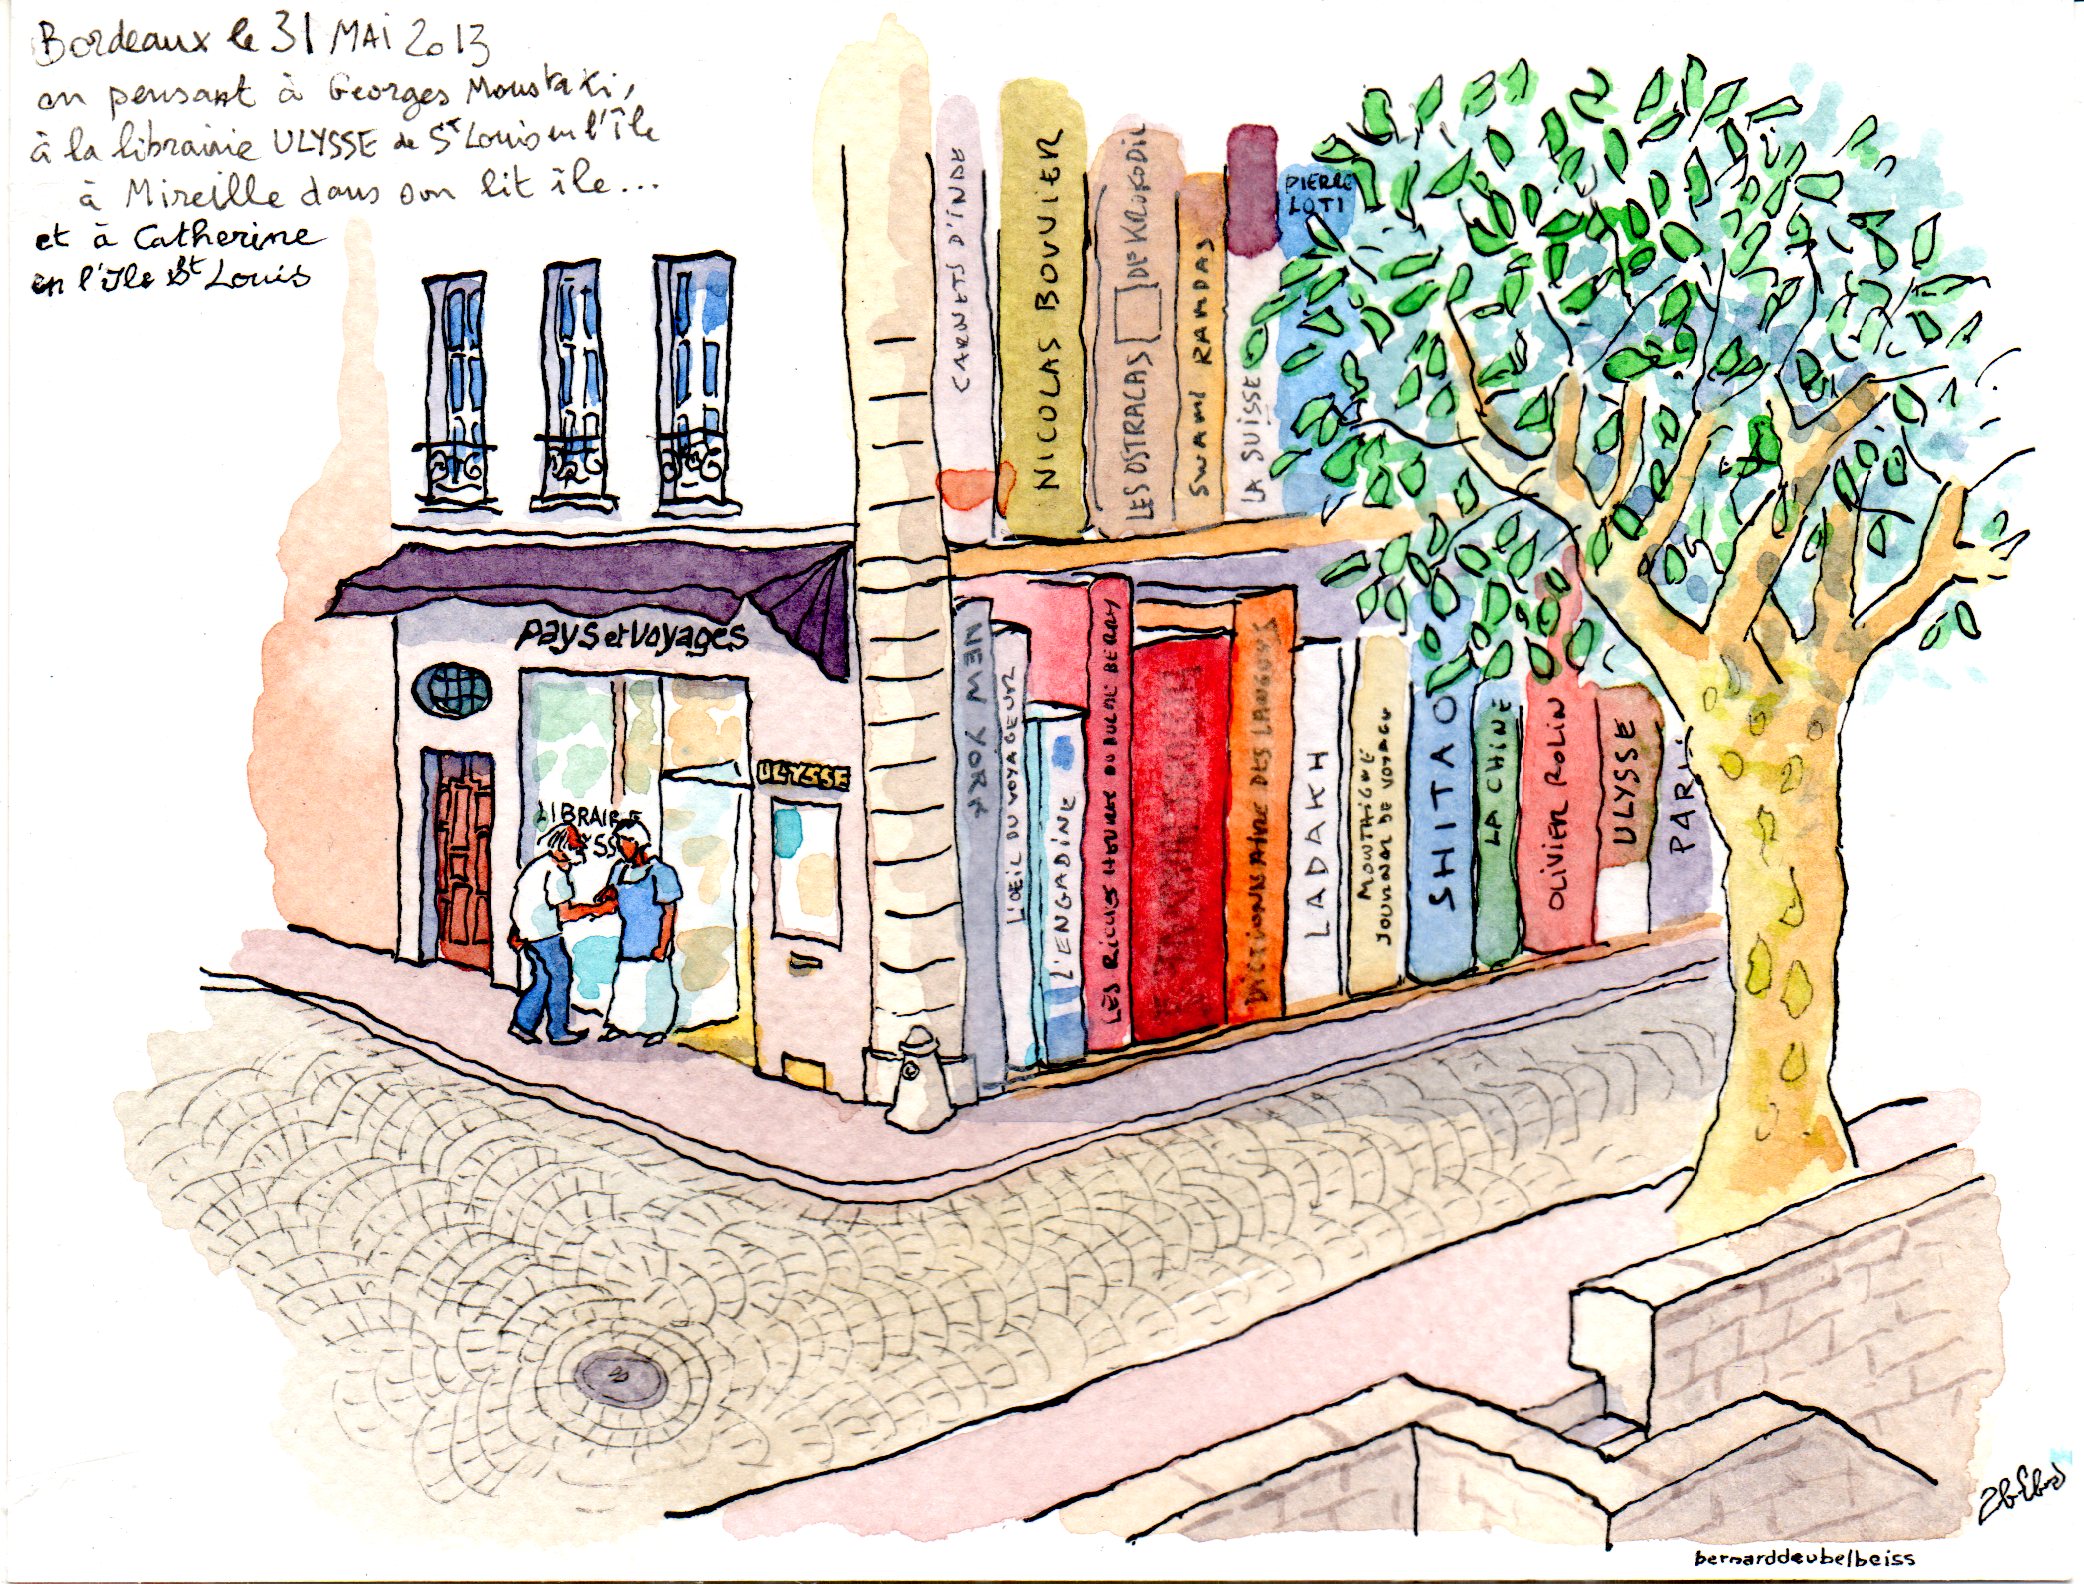 Bordeaux le 31 MAI 2013
en pensant à Georges Moustaki,
à la librairie ULYSSE de St Louis en l'île
à Mireille dans son lit île...
et à Catherine
en l'île St Louis
CARNETS D'INDE
NICOLAS BOUVIER
LES OSTRACAS DE KROKODIL
SWAMI RAMDAS
LA SUISSE
PIERRE
LOTI
Pays et Voyages
ULYSSE
LIBRAIRIE
NEW YORK
L'OEIL DU VOYAGEUR
L'ENGADINE
LES RICHES HEURES DU DUC DE BERRY
DICTIONNAIRE DES LANGUES
LADAKH
MONTAIGNE
JOURNAL DE VOYAGE
SHITAO
LA CHINE
OLIVIER ROLIN
ULYSSE
PARI
bernarddeubelbeiss